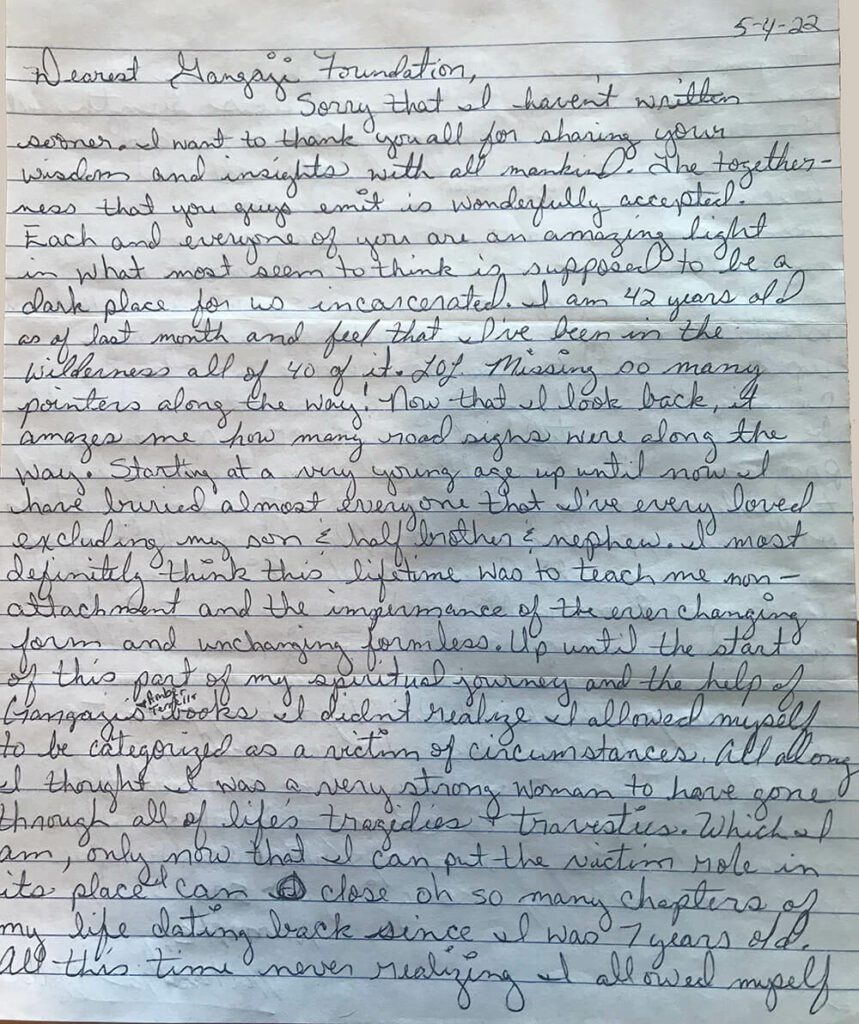 5-4-22
Dearest Gangaji Foundation,
Sorry that I haven't written
sooner. I want to thank you all for sharing your
wisdom and insights with all mankind. The together-
ness that you guys emit is wonderfully accepted.
Each and everyone of you are an amazing light
in what most seem to think is supposed to be a
dark place for us incarcerated. I am 42 years old
as of last month and feel that I've been in the
wilderness all of 40 of it. LOL. Missing so many
pointers along the way! Now that I look back, it
amazes me how many road signs were along the
way. Starting at a very young age up until now I
have buried almost everyone that I've every loved
excluding my son & half brother & nephew. I most
definitely think this lifetime was to teach me non-
attachment and the impermance of the ever changing
form and unchanging formless. Up until the start
of this part of my spiritual journey and the help of
Gangaji's Amber Terrell's books I didn't realize I allowed myself
to be categorized as a victim of circumstances. All along
I thought I was a very strong woman to have gone
through all of life's tragedies + travesties. Which I
am, only now that I can put the victim role in
its place I can close oh so many chapters of
my life dating back since I was 7 years old.
All this time never realizing I allowed myself